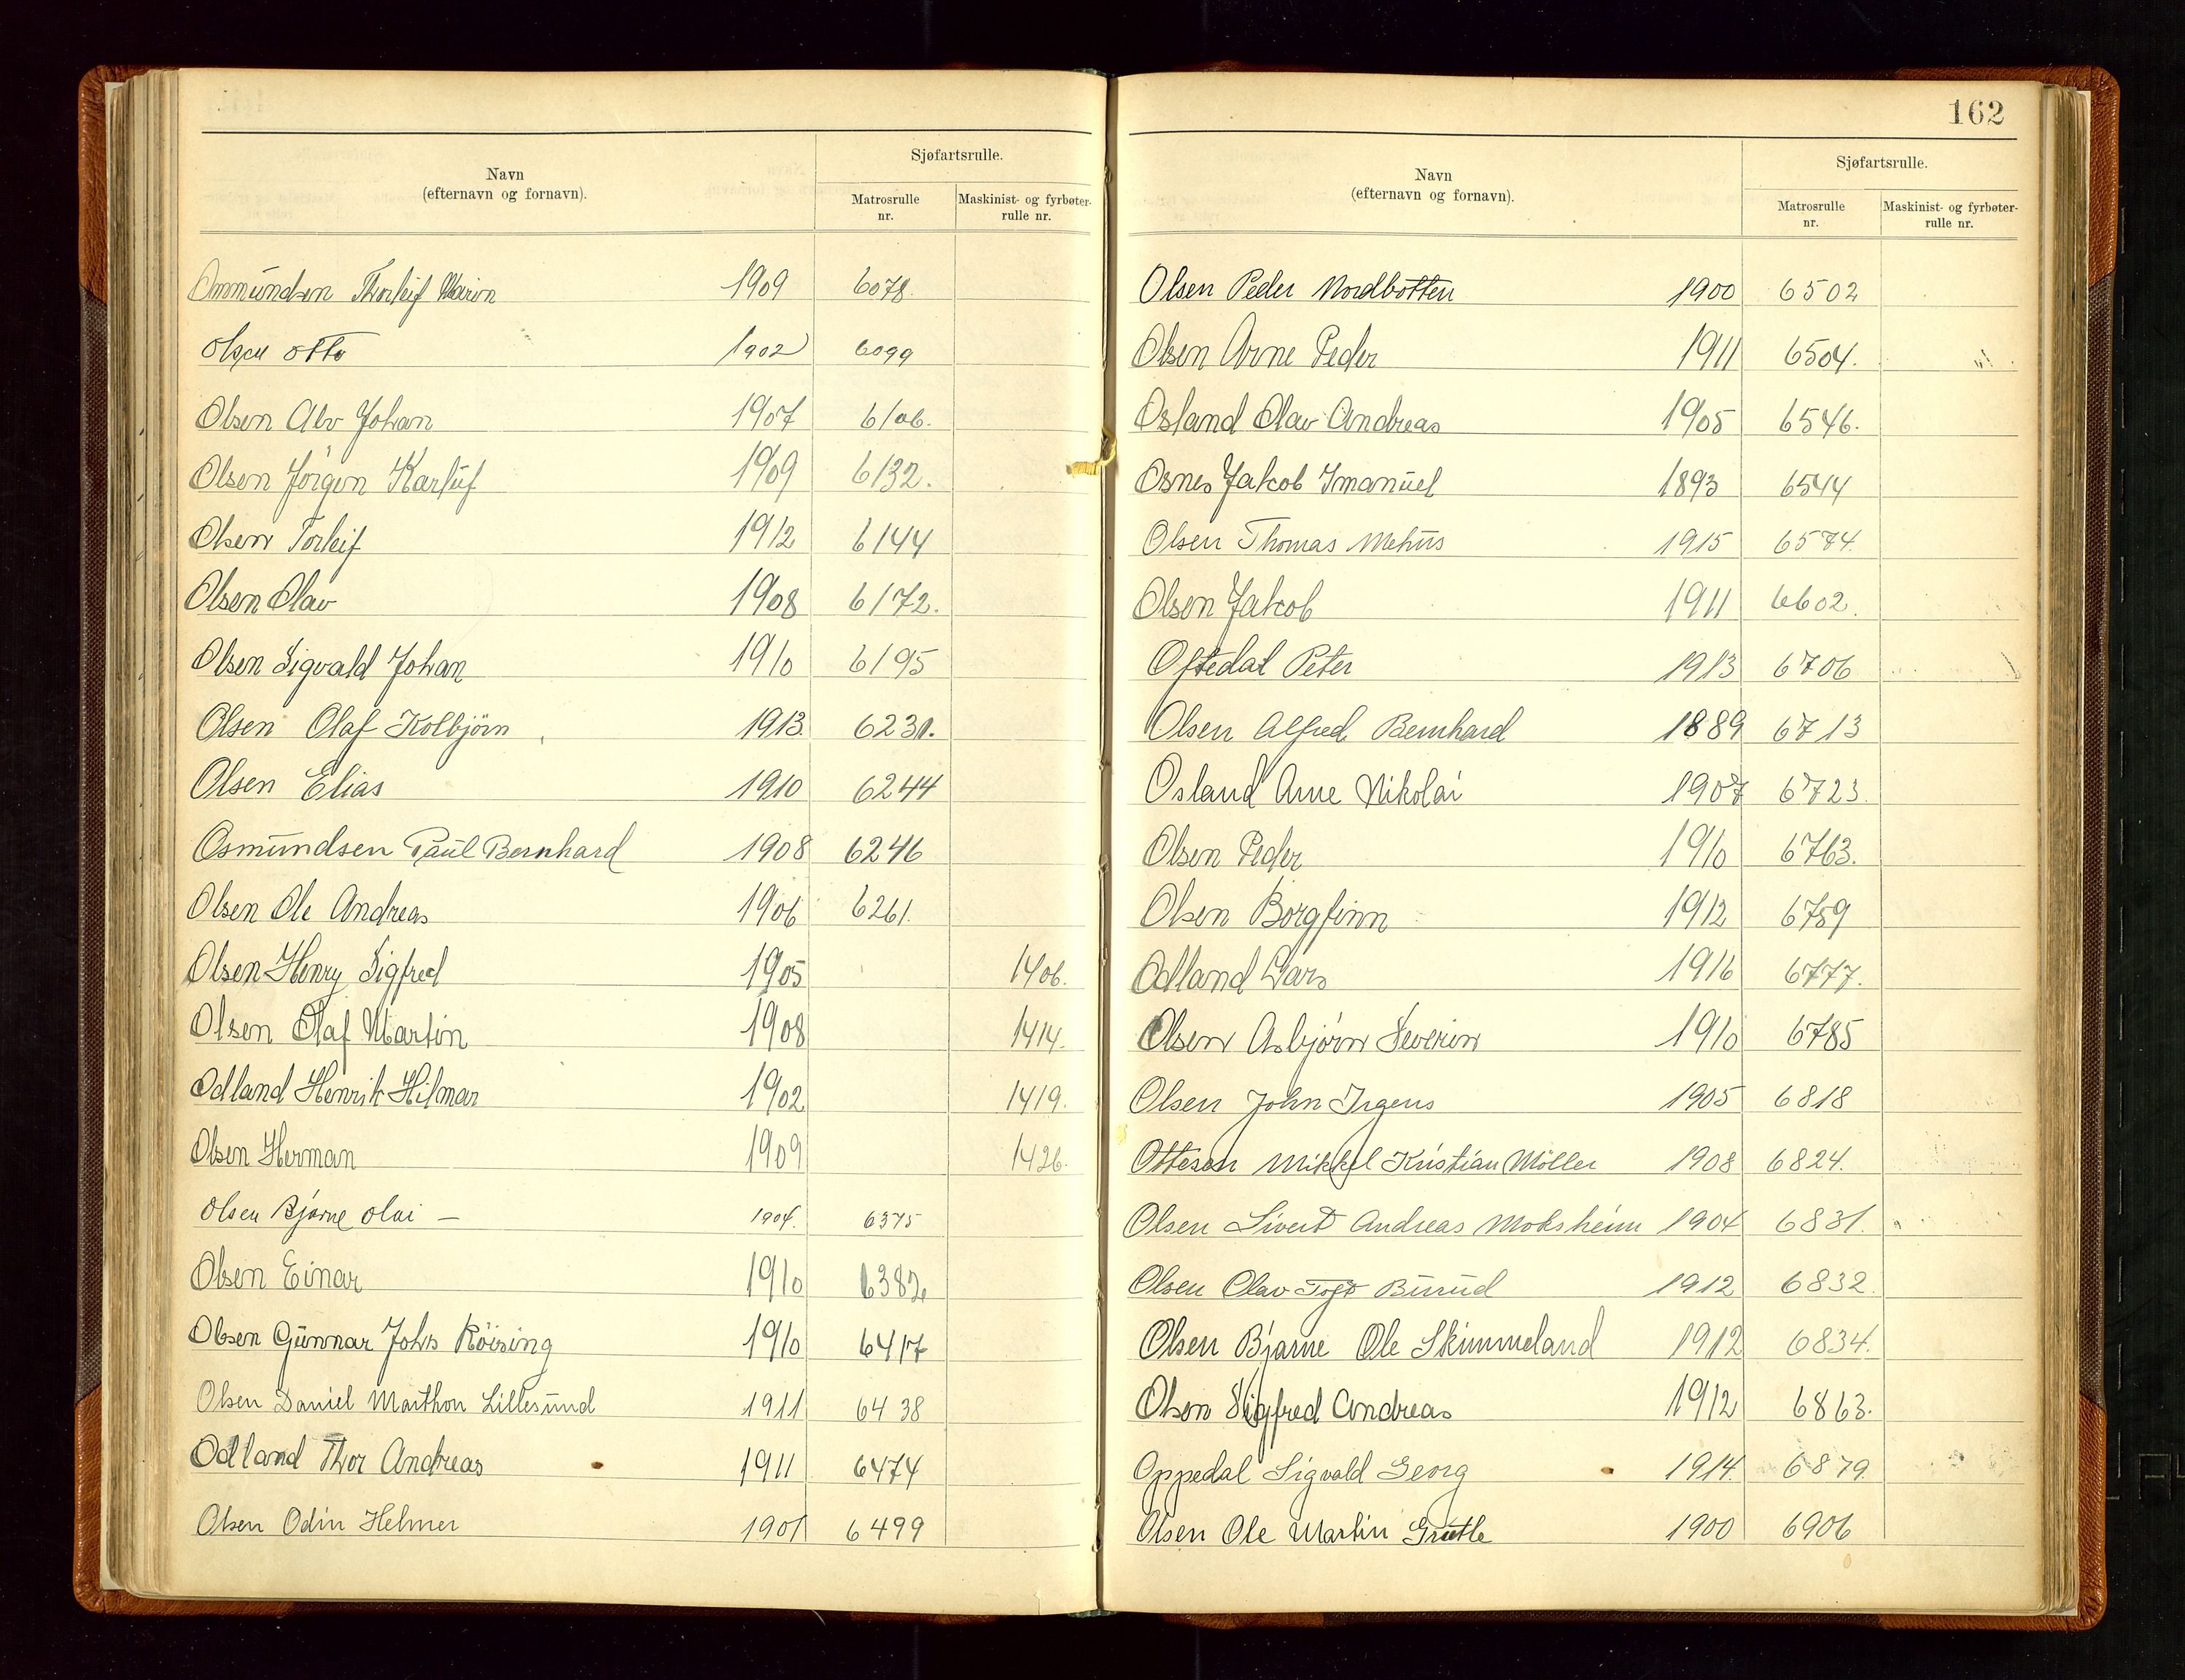 162
Navn
(efternavn og fornavn).
Sjøfartsrulle.
Matrosrulle
nr.
Maskinist- og fyrbøter-
rulle nr.
Ommundsen Thorleif 1909 6078.
Olsen Otto 1902 6099
Olsen Alv Johan 1907 6106.
Olsen Jörgen Karluf 1909 6132.
Olsen Torleif 1912 6144
Olsen Olav 1908 6172.
Olsen Sigvald Johan 1910 6195
Olsen Olaf Kolbjörn 1913 6231.
Olsen Elias 1910 6244
Osmundsen Paul Bernhard 1908 6246
Olsen Ole Andreas 1906 6261.
Olsen Henry Sigfred 1905 1406.
Olsen Olaf Martin 1908 1414.
Odland Henrik Hilmar 1902 1419.
Olsen Herman 1909 1426.
Olsen Bjarne Olai — 1904. 6375
Olsen Einar 1910 6382
Olsen Gunnar Johs Röising 1910 6417
Olsen Daniel Marthon Lillesund 1911 6438
Odland Thor Andreas 1911 6474
Olsen Odin Helmer 1901 6499
Navn
(efternavn og fornavn).
Sjøfartsrulle.
Matrosrulle
nr.
Maskinist- og fyrbøter-
rulle nr.
Olsen Peder Nordbotten 1900 6502
Olsen Arne Peder 1911 6504.
Osland Olav Andreas 1905 6546.
Osnes Jakob Imanuel 1893 6544
Olsen Thomas Mehus 1915 6574.
Olsen Jakob 1911 6602.
Oftedal Peter 1913 6706
Olsen Alfred Bernhard 1889 6713
Osland Arne Nikolai 1907 6723.
Olsen Peder 1910 6763.
Olsen Borgfinn 1912 6759
Odland Lars 1916 6777.
Olsen Asbjørn Severin 1910 6785
Olsen John Irgens 1905 6818
Ottesen Mikkel Kristian Möller 1908 6824.
Olsen Sivert Andreas Moksheim 1904 6831.
Olsen Olav Burud 1912 6832.
Olsen Bjarne Ole Skimmeland 1912 6834.
Olsen Sigfred Andreas 1912 6863.
Oppedal Sigvald Georg 1914. 6879.
Olsen Ole Martin Grutle 1900 6906